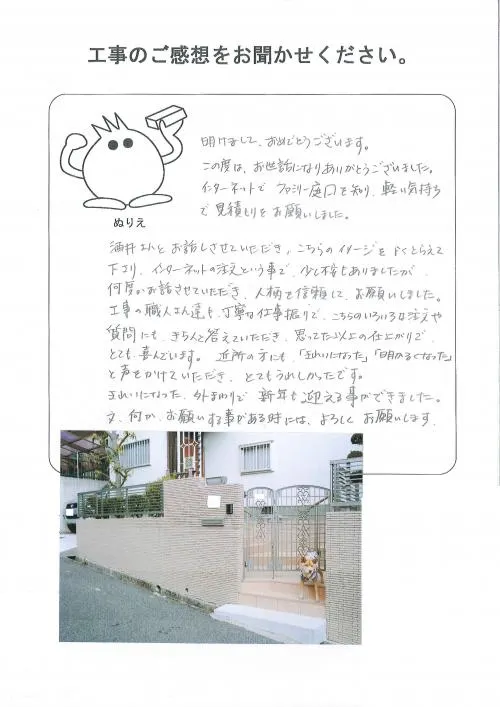 工事のご感想をお聞かせください。
ぬりえ
明けまして、おめでとうございます。
この度は、お世話になりありがとうございました。
インターネットで ファミリー庭口を知り、軽い気持ち
で見積もりをお願いしました。
酒井さんとお話しさせていただき、こちらのイメージをよくとらえて
下さり、インターネットの注文という事で、少し不安もありましたが、
何度かお話させていただき、人柄を信頼して、お願いしました。
工事の職人さん達も、丁寧な仕事振りで、こちらのいろいろな注文や
質問にも、きちんと答えていただき、思ってた以上の仕上がりで、
とても喜んでいます。近所の方にも、「きれいになった」「明かるくなった」
と声をかけていただき、とてもうれしかったです。
きれいになった、外まわりで 新年を迎える事ができました。
又、何か、お願いする事がある時には、よろしくお願いします。